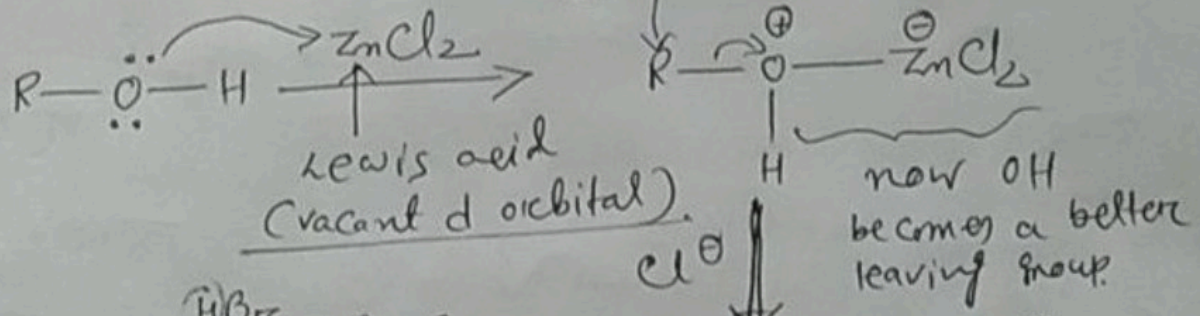 R—Ö—H → ZnCl₂
R—O⊕—ZnCl₂⊖
H
Lewis acid
(vacant d orbital).
now OH
becomes a better
leaving group.
Cl⊖
HBr